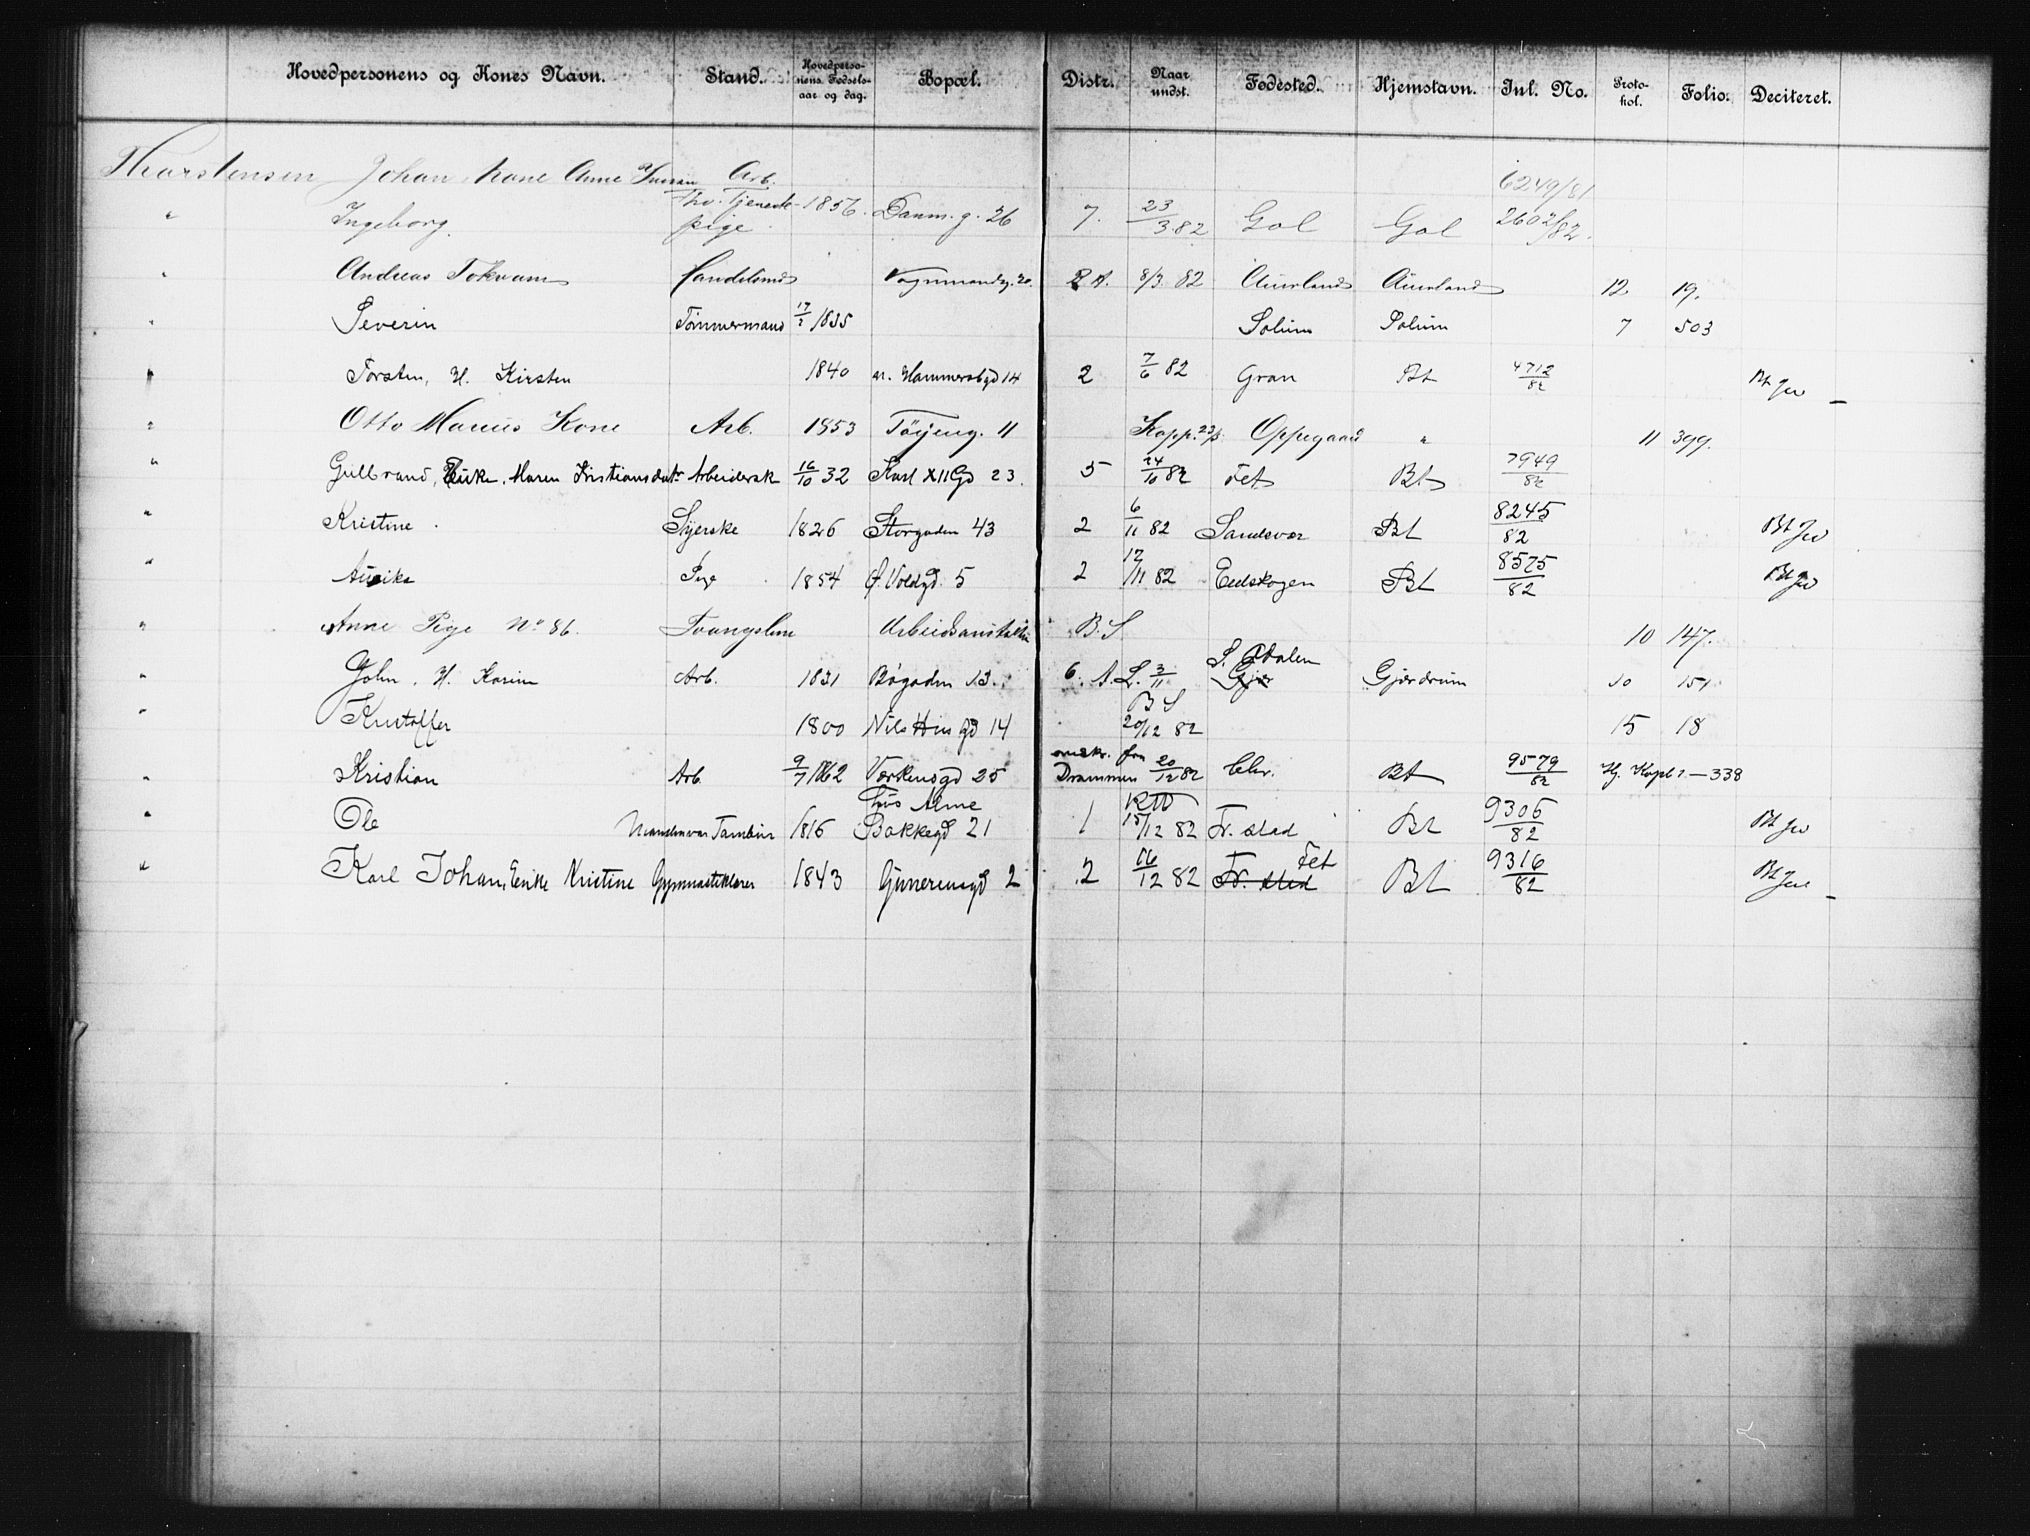 Hovedpersonens og Kones Navn. Stand. Hovedpersonens Fødselsaar og dag. Bopæl. Distr. Naar undst. Fødested. Hjemstavn. Inl. No. Protokol. Folio. Deciteret.
Thorstensen Johan, Kone Anne Arb. 6249/81
" Ingeborg. Tjeneste- pige 1856. Danm. g. 26 7. 23/3 82 Gol Gol 2602/82.
" Andreas Tokvam Handelsmd Vognmandsg. 20. 2 A. 8/3 82 Aurland Aurland 12 19.
" Severin Tømmermand 17/2 1835 Solum Solum 7 503
" Torsten, H. Kirsten 1840 n. Hammersbgd 14 2 7/6 82 Gran Bt 4712/82 Bt Jw
" Otto Marius Kone Arb. 1853 Tøyeng. 11 Kopp. 23/3 Oppegaard " 11 399.
" Gulbrand, Enke, Maren Kristiansdatr Arbeidersk 16/10 32 Karl XII Gd 23. 5 24/10 82 Fet Bt 7949/82
" Kristine. Syerske 1826 Storgaden 43 2 6/11 82 Sandsvær Bt 8245/82 Bt Jw
" Pige 1854 Ø. Voldgd. 5 2 17/11 82 Eidskogen Bt 8575/82 Bt Jw
" Anne Pige No 86. Tvangslem Arbeidsanstalten B. S 10 147.
" John, H. Karin Arb. 1831 Bøgaden 13. 6. A. L. 3/11 S. Odalen Gjer Gjerdrum 10 151
" Kristoffer 1800 Nils Hus gd 14 BS 20/12 82 15 18
" Kristian Arb 9/7 1862 Værkensgd 25 omskr. fra Drammen 20/12 82 Chr. Bt 9579/82 Hj. Kopb 2 — 338
" Ole Tambur 1816 hos Arne Bakkegd 21 1 15/12 82 Fr. stad Bt 9305/82 Bt Jw
" Karl Johan, Enke Kristine Gymnastiklærer 1843 Gunerensgd 2 2 16/12 82 Fr. stad Fet Bt 9316/82 Bt Jw